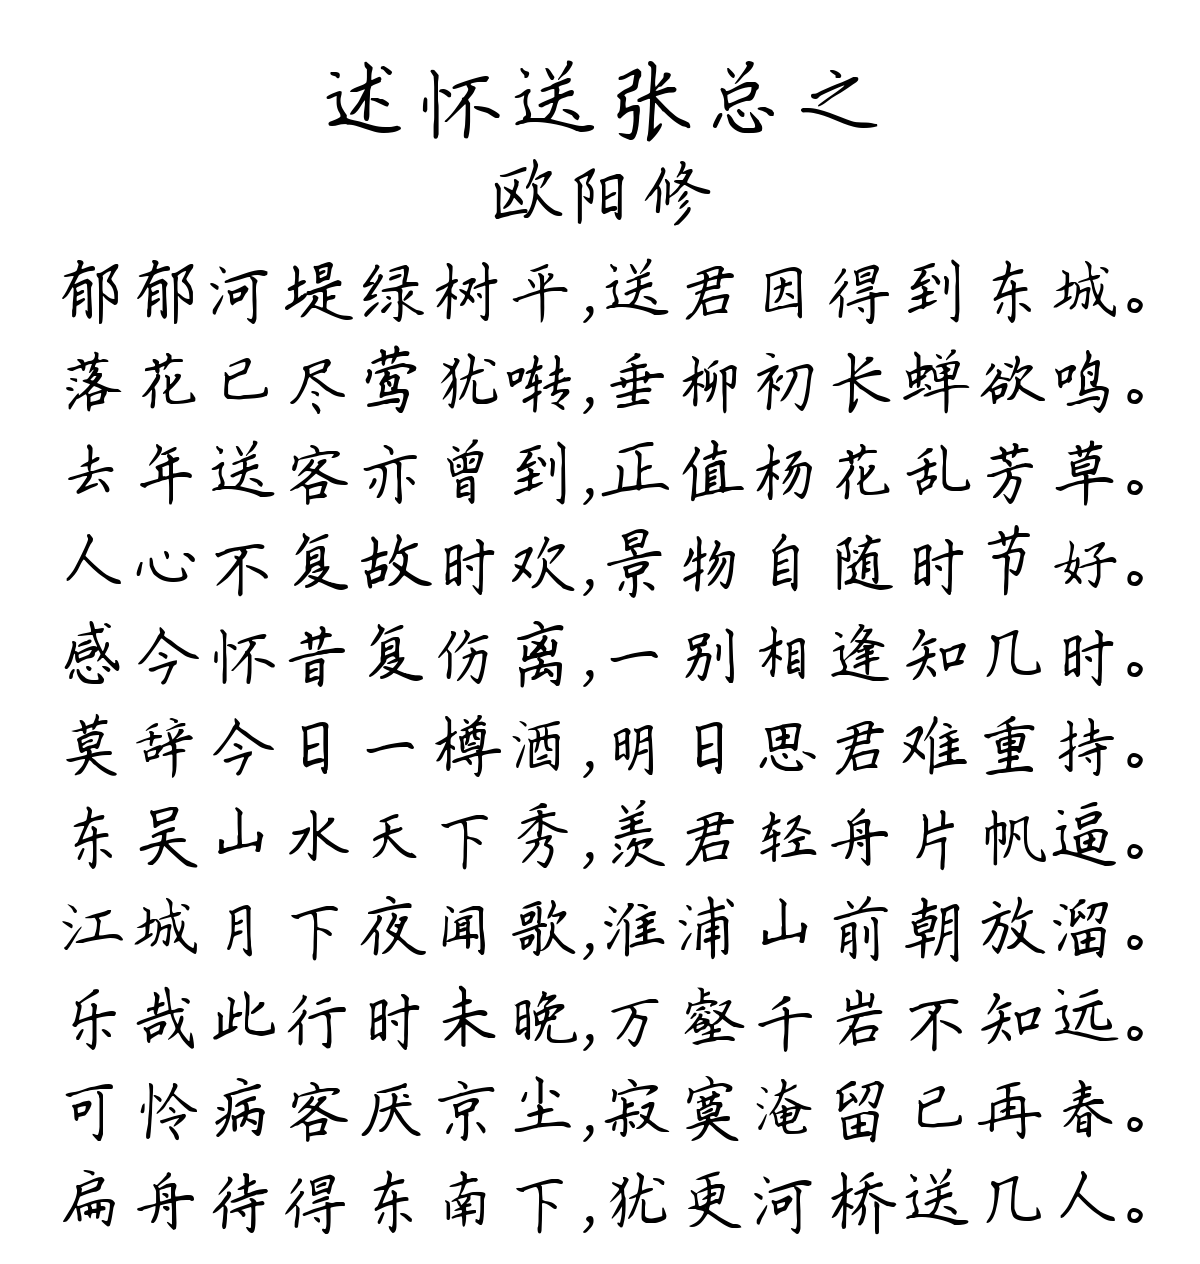 述怀送张总之
欧阳修
郁郁河堤绿树平,送君因得到东城。
落花已尽莺犹啭,垂柳初长蝉欲鸣。
去年送客亦曾到,正值杨花乱芳草。
人心不复故时欢,景物自随时节好。
感今怀昔复伤离,一别相逢知几时。
莫辞今日一樽酒,明日思君难重持。
东吴山水天下秀,羡君轻舟片帆逼。
江城月下夜闻歌,淮浦山前朝放溜。
乐哉此行时未晚,万壑千岩不知远。
可怜病客厌京尘,寂寞淹留已再春。
扁舟待得东南下,犹更河桥送几人。